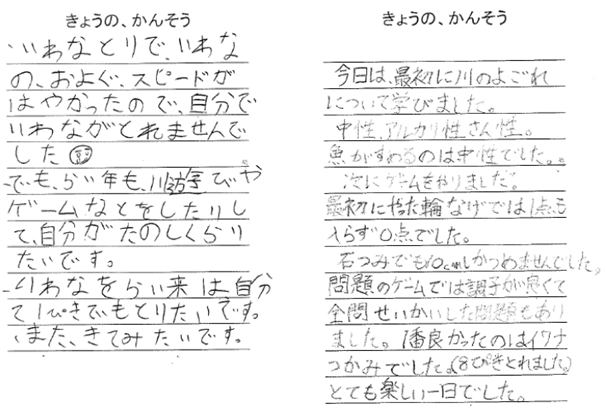 きょうの、かんそう
・いわなとりで、いわな
の、およぐ、スピードが
はやかったので、自分で
いわながとれませんで
した
。でも、らい年も、川遊びや
ゲームなどをしたりし
て、自分がたのしくらり
たいです。
・いわなをらい来は自分
で1ぴきでもとりたいです。
また、きてみたいです。
きょうの、かんそう
今日は、最初に川のよごれ
について学びました。
中性、アルカリ性、さん性。
魚がすめるのは中性でした。
次にゲームをやりました。
最初にやった輪なげでは1点も
入らず0点でした。
石つみでも10cmしかつめませんでした。
問題のゲームでは調子が良くて
全問せいかいした問題もあり
ました。1番良かったのはイワナ
つかみでした。(8ぴきとれました)
とても楽しい一日でした。